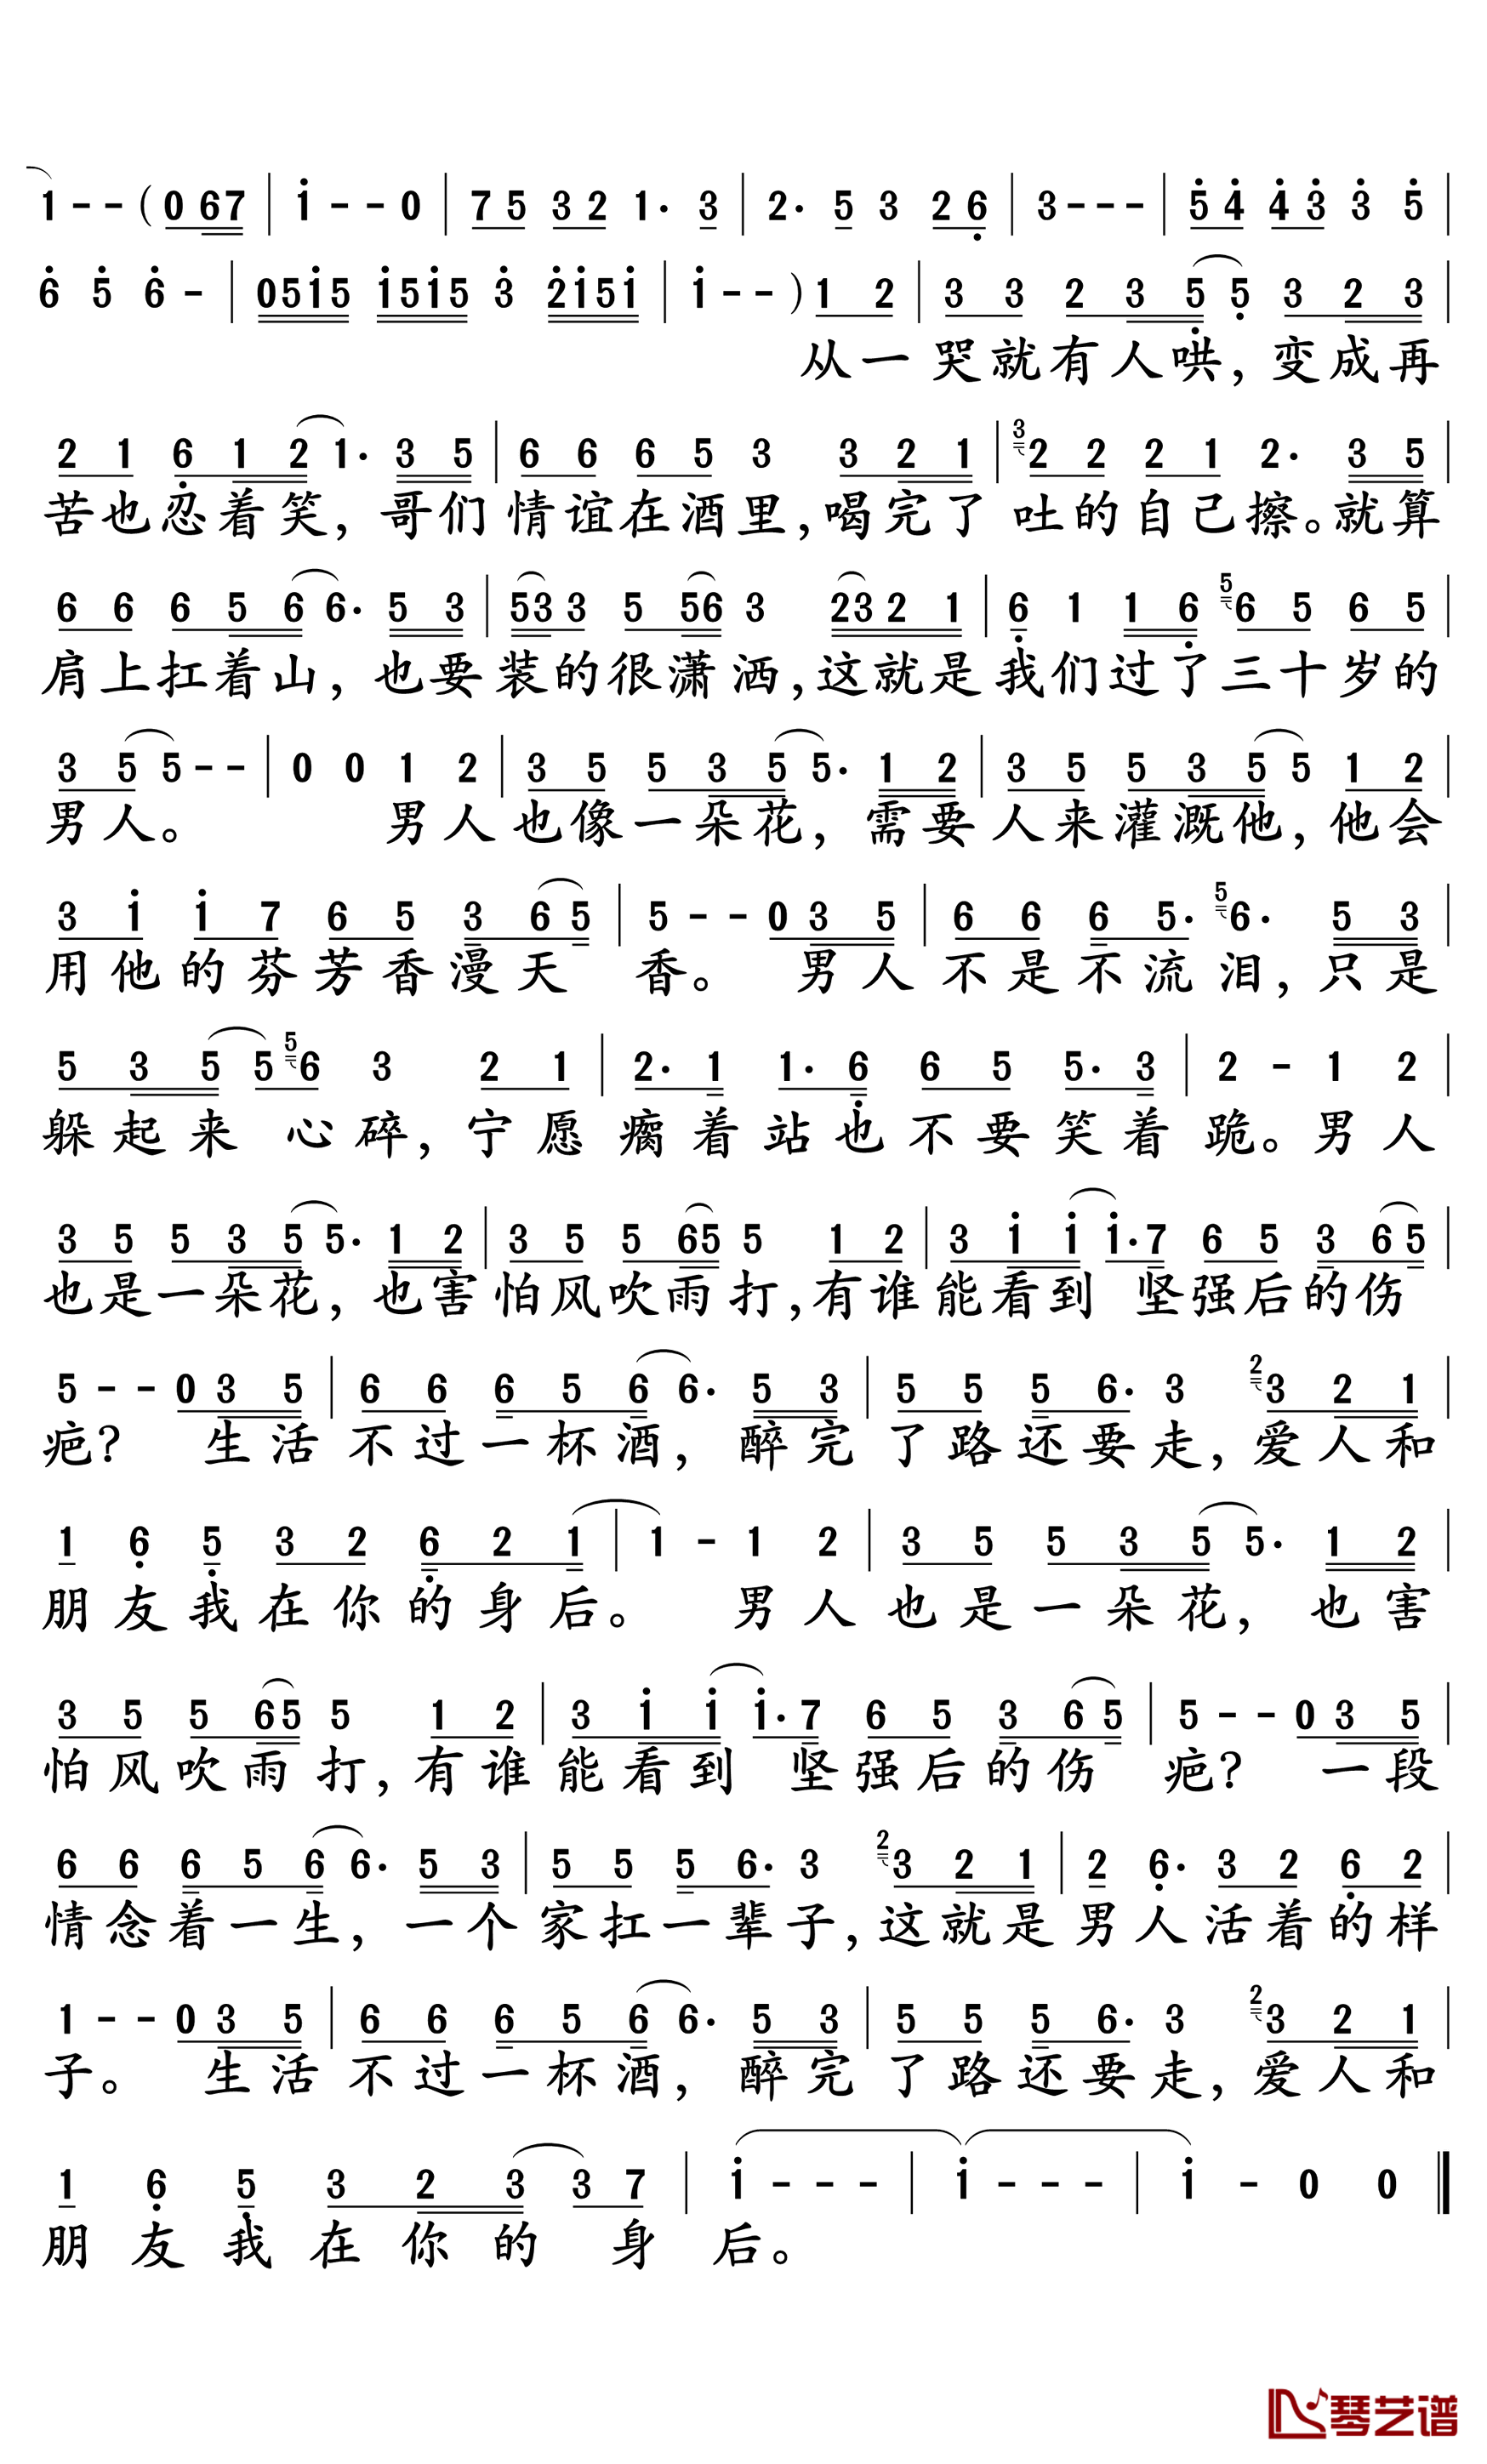 1 - - ( 0 67 | i - - 0 | 75 32 1· 3 | 2· 5 3 26 | 3 - - - | 54 43 3 5 |
6 5 6 - | 0515 1515 3 2151 | i - - ) 1 2 | 3 3 2 3 5 5 3 2 3 |
从一哭就有人哄，变成再
2 1 6 1 2 1· 3 5 | 6 6 6 5 3 3 2 1 | 3 2 2 2 1 2· 3 5 |
苦也忍着笑，哥们情谊在酒里，喝完了吐的自己擦。就算
6 6 6 5 6 6· 5 3 | 53 3 5 56 3 23 2 1 | 6 1 1 6 5 6 5 6 5 |
肩上扛着山，也要装的很潇洒，这就是我们过了三十岁的
3 5 5 - - | 0 0 1 2 | 3 5 5 3 5 5· 1 2 | 3 5 5 3 5 5 1 2 |
男人。男人也像一朵花，需要人来灌溉他，他会
3 i i 7 6 5 3 6 5 | 5 - - 0 3 5 | 6 6 6 5· 5 6· 5 3 |
用他的芬芳香漫天香。男人不是不流泪，只是
5 3 5 5 5 6 3 2 1 | 2· 1 1· 6 6 5 5· 3 | 2 - 1 2 |
躲起来心碎，宁愿瘸着站也不要笑着跪。男人
3 5 5 3 5 5· 1 2 | 3 5 5 65 5 1 2 | 3 i i i· 7 6 5 3 6 5 |
也是一朵花，也害怕风吹雨打，有谁能看到坚强后的伤
5 - - 0 3 5 | 6 6 6 5 6 6· 5 3 | 5 5 5 6· 3 2 3 2 1 |
疤？生活不过一杯酒，醉完了路还要走，爱人和
1 6 5 3 2 6 2 1 | 1 - 1 2 | 3 5 5 3 5 5· 1 2 |
朋友我在你的身后。男人也是一朵花，也害
3 5 5 65 5 1 2 | 3 i i i· 7 6 5 3 6 5 | 5 - - 0 3 5 |
怕风吹雨打，有谁能看到坚强后的伤疤？一段
6 6 6 5 6 6· 5 3 | 5 5 5 6· 3 2 3 2 1 | 2 6· 3 2 6 2 |
情念着一生，一个家扛一辈子，这就是男人活着的样
1 - - 0 3 5 | 6 6 6 5 6 6· 5 3 | 5 5 5 6· 3 2 3 2 1 |
子。生活不过一杯酒，醉完了路还要走，爱人和
1 6 5 3 2 3 3 7 | i - - - | i - - - | i - 0 0 ‖
朋友我在你的身后。
琴艺谱